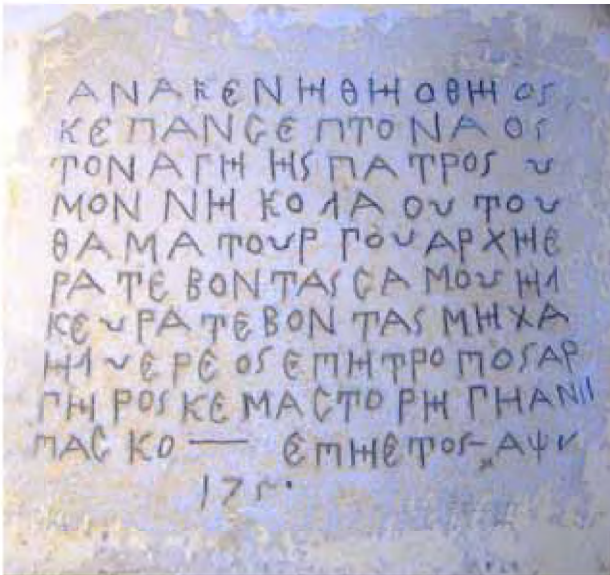 ΑΝΑΚΕΝΗΘΗΟΘΗΟΣ
ΚΕ ΠΑΝCΕΠΤΟΝΑΟΣ
ΤΟΝΑΓΗΗΣ ΠΑΤΡΟΣ υ
ΜΟΝ ΝΗΚΟΛΑΟυ ΤΟυ
ΘΑΜΑΤΟυΡΓΟυ ΑΡΧΗΕ
ΡΑΤΕΒΟΝΤΑΣ CΑΜΟυΗΛ
ΚΕ υΡΑΤΕΒΟΝΤΑΣ ΜΗΧΑ
ΗΛ υΕΡΕΟΣ ΕΠΗΤΡΟΠΟΣ ΑΡ
ΓΗΡΟΣ ΚΕ ΜΑCΤΟΡΗ ΓΗΑΝΙ
ΠΑCΚΟ — ΕΠΗΕΤΟΣ ΑΨν
175